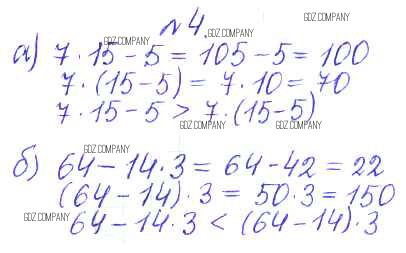 №4.
а) 7 · 15 − 5 = 105 − 5 = 100
7 · (15 − 5) = 7 · 10 = 70
7 · 15 − 5 > 7 · (15 − 5)
б) 64 − 14 · 3 = 64 − 42 = 22
(64 − 14) · 3 = 50 · 3 = 150
64 − 14 · 3 < (64 − 14) · 3
GDZ.COMPANY
GDZ.COMPANY
GDZ.COMPANY
GDZ.COMPANY
GDZ.COMPANY
GDZ.COMPANY
GDZ.COMPANY